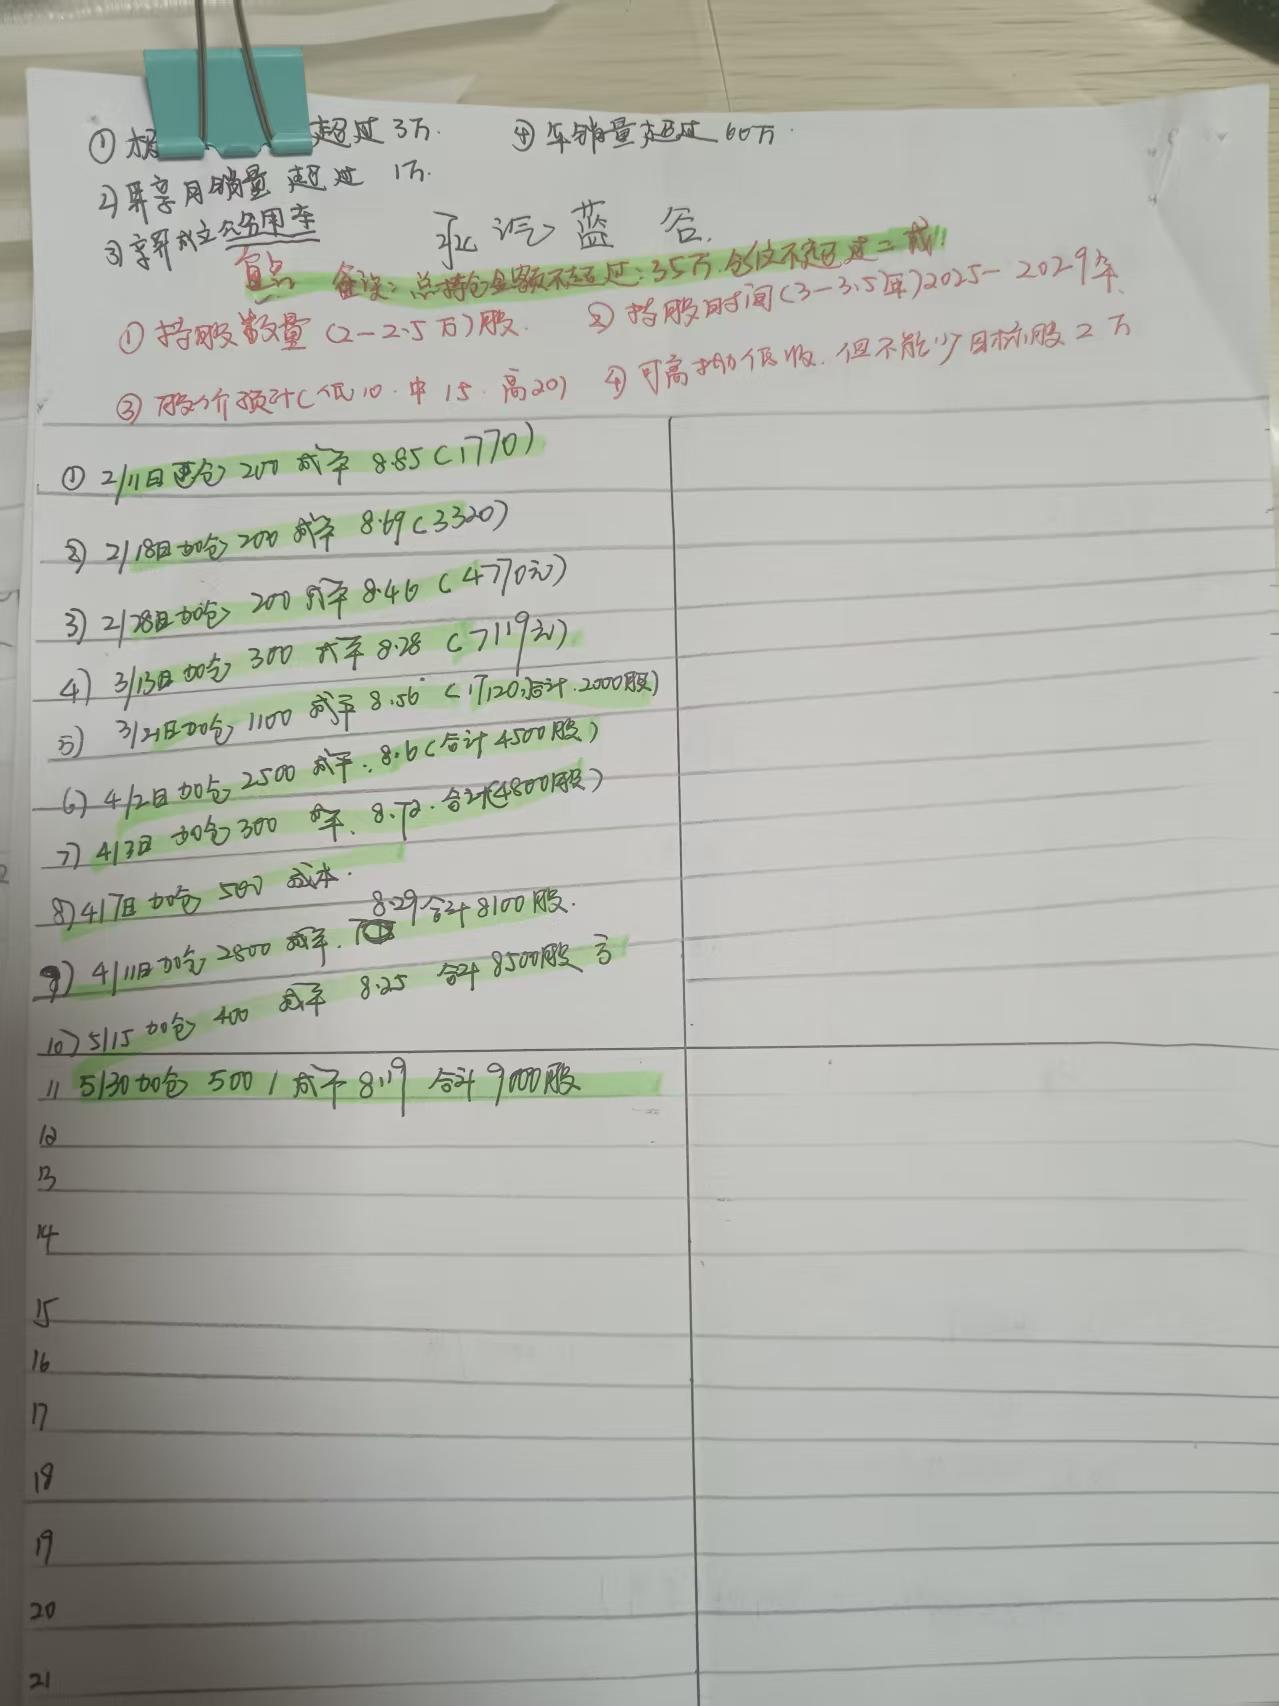 ① 超过 3万. ④ 车销量超过 60万.
2) 月销量 超过 1万.
3) 享界成立公务用车
汽 蓝 谷.
总持仓金额不超过:35万.仓位不超过二成!
① 持股数量 (2-2.5万)股. ② 持股时间(3-3.5年)2025-2029年.
③ 股价预计(低10.中15.高20) ④ 可高抛低吸.但不能少目标股2万
① 2/11日建仓 200 成本 8.85(1770)
2) 2/18日加仓 200 成本 8.69(3320)
3) 2/28日加仓 200 成本 8.46 (4770元)
4) 3/13日加仓 300 成本 8.28 (7119元)
5) 3/21日加仓 1100 成本 8.56 (17120,合计.2000股)
6) 4/2日加仓 2500 成本.8.6(合计4500股)
7) 4/3日 加仓 300 成本.8.72.合计(4800股)
8) 4/7日加仓 500 成本.
9) 4/11日加仓 2800 成本. 8.29合计8100股.
10) 5/15 加仓 400 成本 8.25 合计 8500股
11 5/30加仓 500 / 成本 8.19 合计 9000股
12
13
14
15
16
17
18
19
20
21